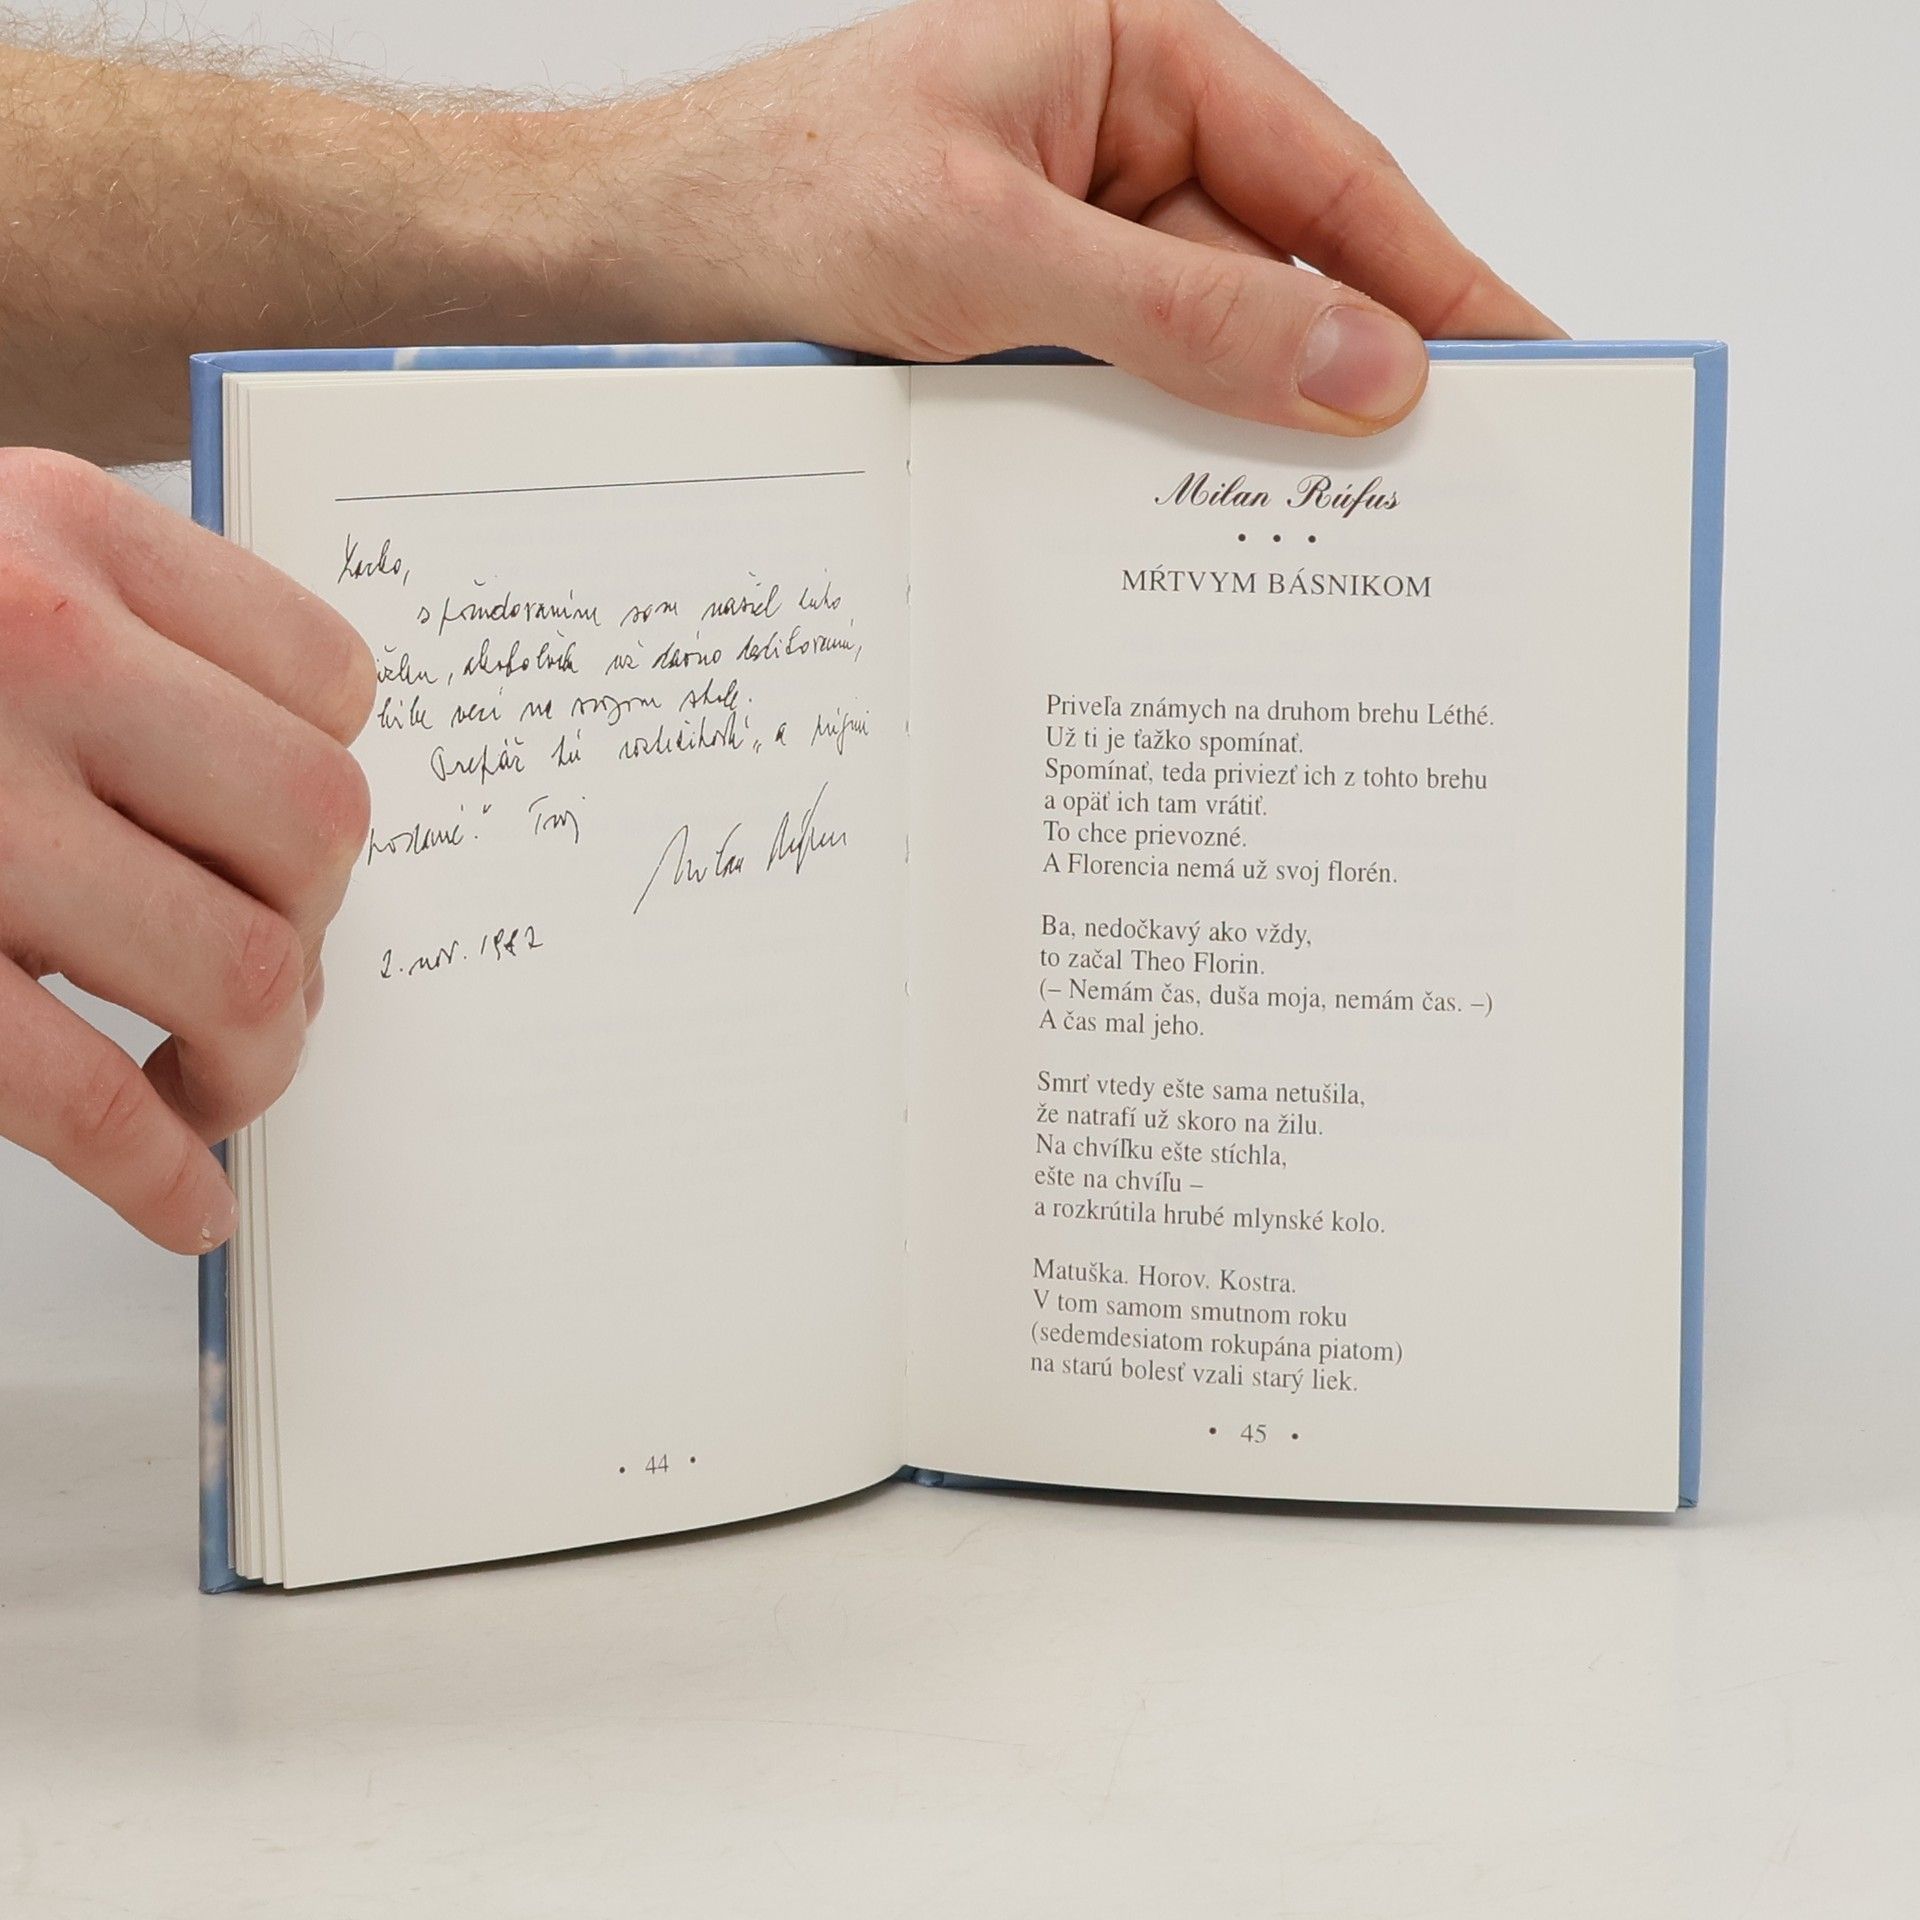 s som našiel túto
, už dávno
veci na svojom stole.
Prepáč tú a
Tvoj
Milan Rúfus
2. nov.
• 44 •
Milan Rúfus
• • •
MŔTVYM BÁSNIKOM
Priveľa známych na druhom brehu Léthé.
Už ti je ťažko spomínať.
Spomínať, teda priviezť ich z tohto brehu
a opäť ich tam vrátiť.
To chce prievozné.
A Florencia nemá už svoj florén.
Ba, nedočkavý ako vždy,
to začal Theo Florin.
(– Nemám čas, duša moja, nemám čas. –)
A čas mal jeho.
Smrť vtedy ešte sama netušila,
že natrafí už skoro na žilu.
Na chvíľku ešte stíchla,
ešte na chvíľu –
a rozkrútila hrubé mlynské kolo.
Matuška. Horov. Kostra.
V tom samom smutnom roku
(sedemdesiatom rokupána piatom)
na starú bolesť vzali starý liek.
• 45 •